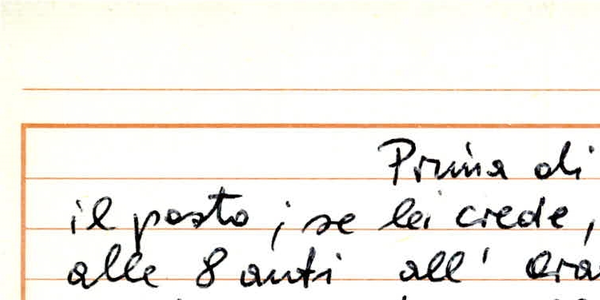 Prima di
il posto ; se lei crede,
alle 8 anti all'